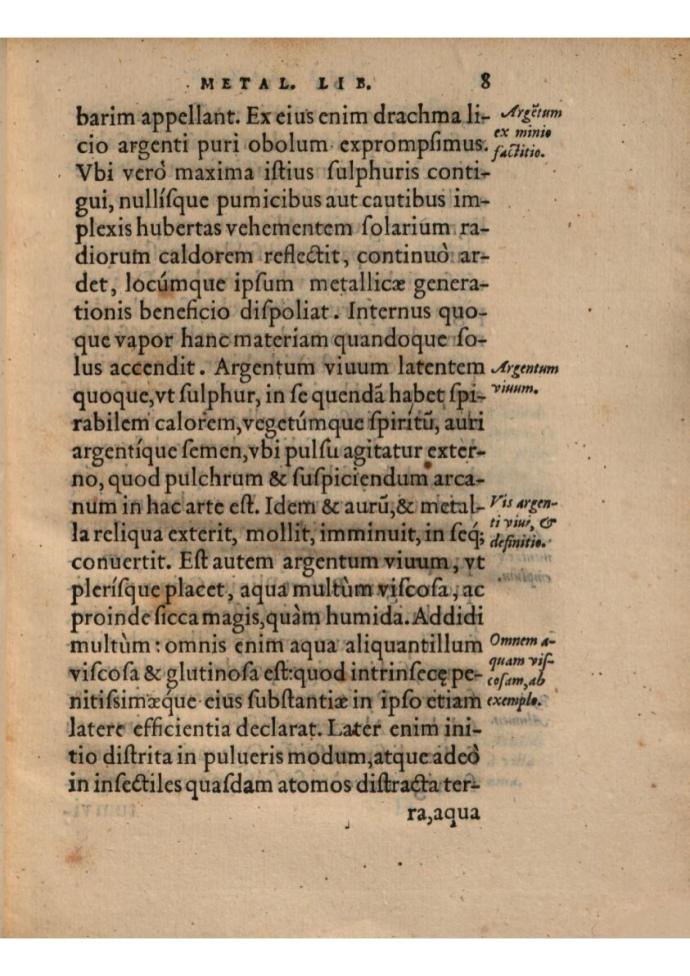 METAL. LIB. 8
barim appellant. Ex eius enim drachma li-
cio argenti puri obolum exprompſimus.
Vbi verò maxima iſtius ſulphuris conti-
gui, nullíſque pumicibus aut cautibus im-
plexis hubertas vehementem ſolarium ra-
diorum caldorem reflectit, continuò ar-
det, locúmque ipſum metallicæ genera-
tionis beneficio diſpoliat. Internus quo-
que vapor hanc materiam quandoque ſo-
lus accendit. Argentum viuum latentem
quoque,vt ſulphur, in ſe quendã habet ſpi-
rabilem calorem,vegetúmque ſpiritũ, auri
argentíque ſemen,vbi pulſu agitatur exter-
no, quod pulchrum & ſuſpiciendum arca-
num in hac arte eſt. Idem & aurũ,& metal-
la reliqua exterit, mollit, imminuit, in ſeq;
conuertit. Eſt autem argentum viuum, vt
pleríſque placet, aqua multùm viſcoſa, ac
proinde ſicca magis,quàm humida. Addidi
multùm: omnis enim aqua aliquantillum
viſcoſa & glutinoſa eſt:quod intrinſecę pe-
nitiſsimæque eius ſubſtantiæ in ipſo etiam
latere efficientia declarat. Later enim ini-
tio diſtrita in pulueris modum,atque adeò
in inſectiles quaſdam atomos diſtracta ter-
ra,aqua
Argẽtum
ex minio
factitio.
Argentum
viuum.
Vis argen-
ti viui, &
definitio.
Omnem a-
quam viſ-
coſam,ab
exemplo.